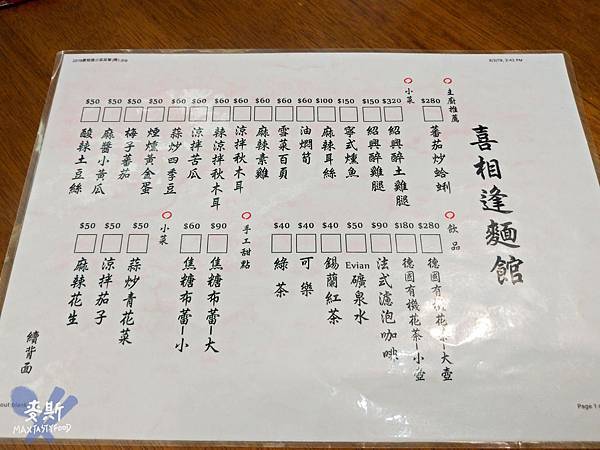 喜相逢麵館
主廚推薦
$280
番茄炒蛤蜊
小菜
$320
紹興醉土雞腿
$150
紹興醉雞腿
$150
寧式燻魚
$100
麻辣耳絲
$60
油燜筍
$60
雪菜百頁
$60
麻辣素雞
$60
涼拌秋木耳
$60
辣涼拌秋木耳
$60
涼拌苦瓜
$60
蒜炒四季豆
$50
煙燻黃金蛋
$50
梅子番茄
$50
麻醬小黃瓜
$50
酸辣土豆絲
飲品
$280
德國有機花茶-大壺
$180
德國有機花茶-小壺
$90
法式濾泡咖啡
$50
Evian礦泉水
$40
錫蘭紅茶
$40
可樂
$40
綠茶
手工甜點
$90
焦糖布蕾-大
$60
焦糖布蕾-小
小菜
$50
蒜炒青花菜
$50
涼拌茄子
$50
麻辣花生
續背面
Page 1
麥斯
MAXTASTYFOOD